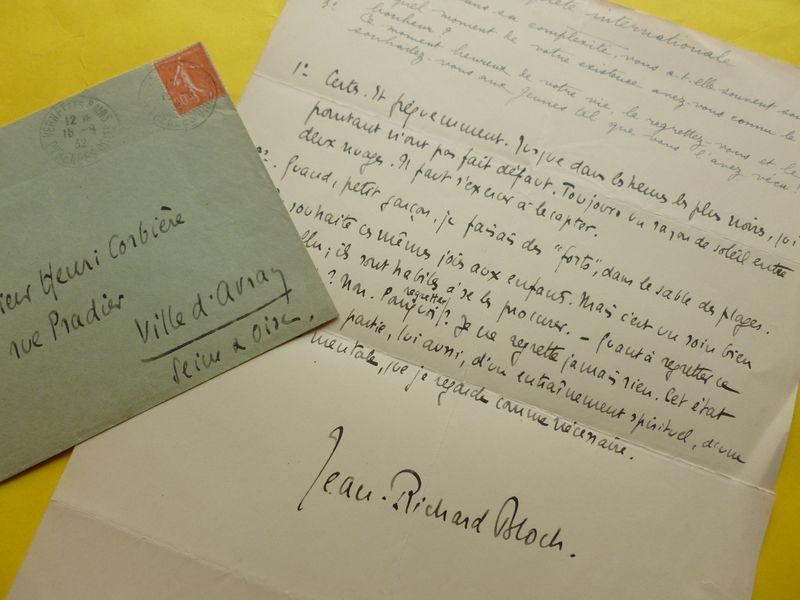 internationale
dans sa complexité, vous a-t-elle souvent
quel moment de votre existence avez-vous connu le
bonheur?
3º Ce moment heureux de votre vie, le regrettez-vous et le
souhaitez-vous aux Jeunes tel que vous l'avez vécu?
1º. Certes. Et fréquemment. Jusque dans les heures les plus noires, qui
pourtant n'ont pas fait défaut. Toujours un rayon de soleil entre
deux nuages. Il faut s'exercer à le capter.
2º. Quand, petit garçon, je faisais des "forts", dans le sable des plages.
souhaite ces mêmes joies aux enfants. Mais c'est un soin bien
; ils sont habiles à se les procurer. – Quant à regretter ce
? Non. Pourquoi regretter? Je ne regrette jamais rien. Cet état
partie, lui aussi, d'un entraînement spirituel, d'une
mentale, que je regarde comme nécessaire.
Jean-Richard Bloch.
VERNET-LES-BAINS
12
18-9
32
PYRÉNÉES-
Henri Corbière
rue Pradier
Ville d'Avray
Seine & Oise.